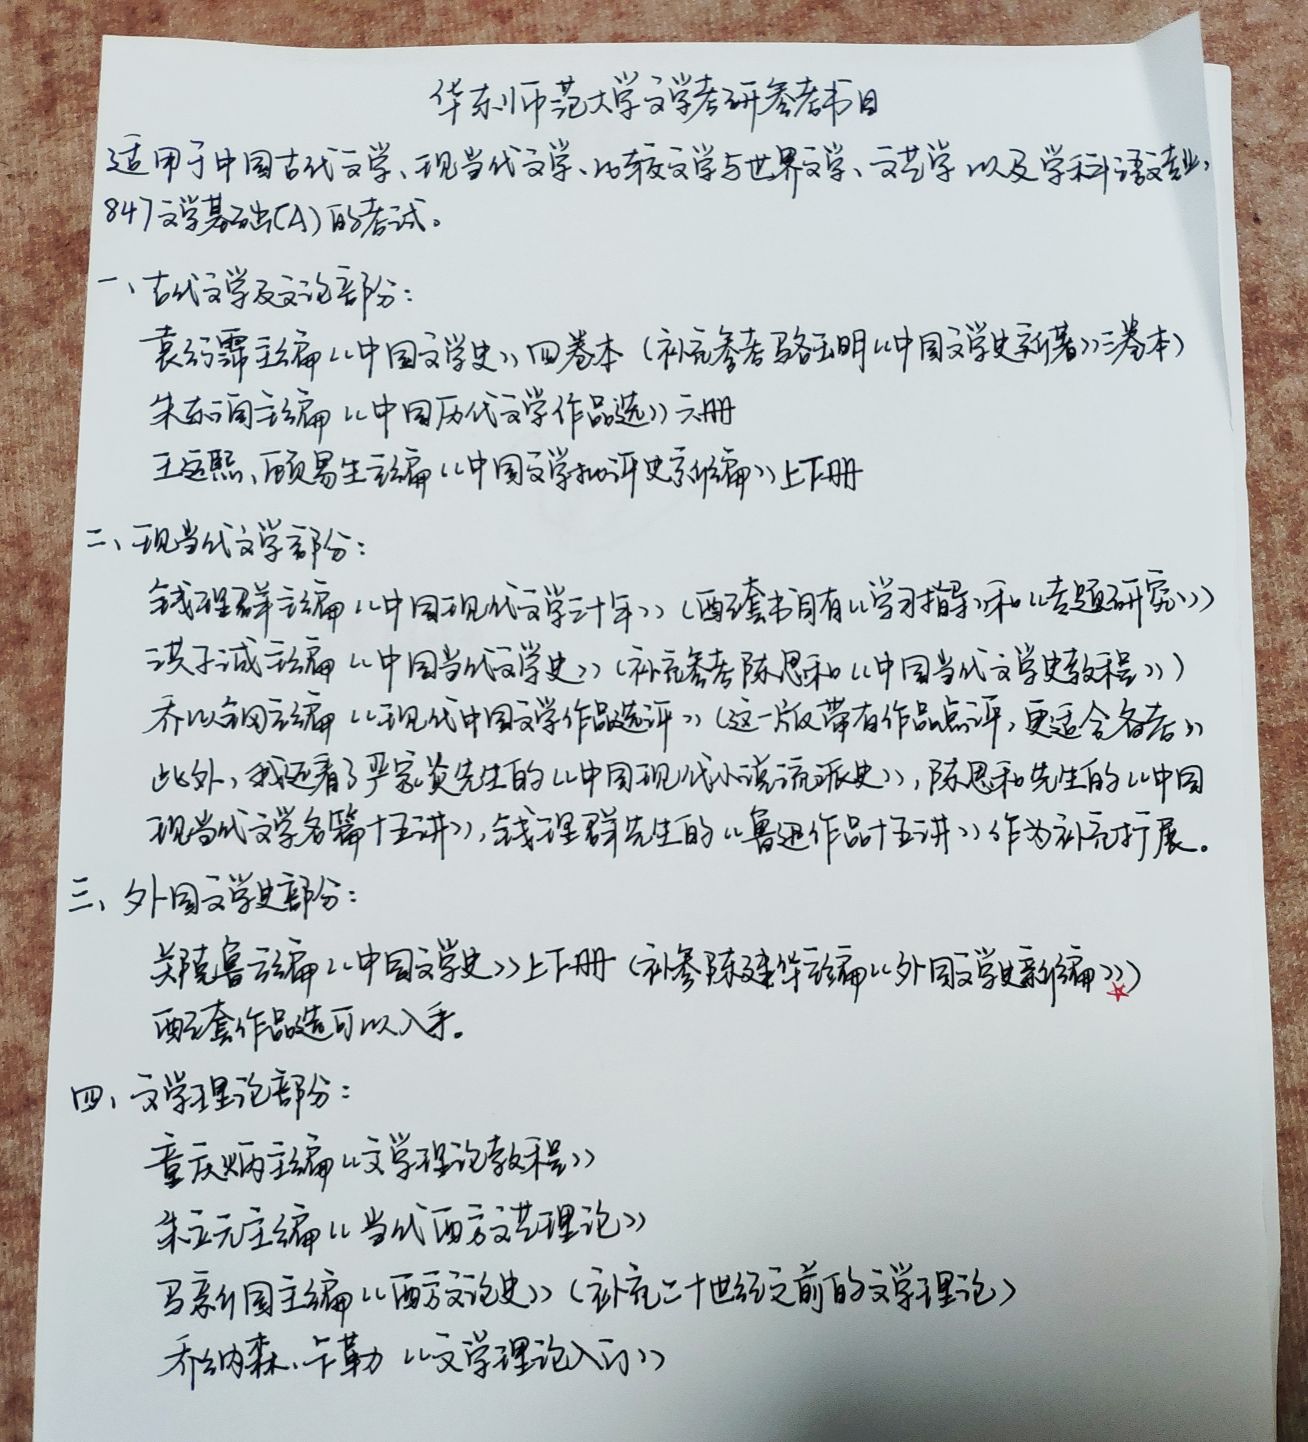 华东师范大学文学考研参考书目
适用于中国古代文学、现当代文学、比较文学与世界文学、文艺学以及学科语文专业,
847文学基础(A)的考试。
一、古代文学及文论部分:
袁行霈主编《中国文学史》四卷本(补充参考骆玉明《中国文学史新著》三卷本)
朱东润主编《中国历代文学作品选》六册
王运熙、顾易生主编《中国文学批评史新编》上下册
二、现当代文学部分:
钱理群主编《中国现代文学三十年》(配套书目有《学习指导》和《专题研究》)
洪子诚主编《中国当代文学史》(补充参考陈思和《中国当代文学史教程》)
乔以钢主编《现代中国文学作品选评》(这一版带有作品点评,更适合备考)
此外,我还看了严家炎先生的《中国现代小说流派史》,陈思和先生的《中国
现当代文学名篇十五讲》,钱理群先生的《鲁迅作品十五讲》作为补充扩展。
三、外国文学史部分:
郑克鲁主编《中国文学史》上下册(补参陈建华主编《外国文学史新编》)
配套作品选可以入手。
四、文学理论部分:
童庆炳主编《文学理论教程》
朱立元主编《当代西方文艺理论》
马新国主编《西方文论史》(补充二十世纪之前的文学理论)
乔纳森、卡勒《文学理论入门》